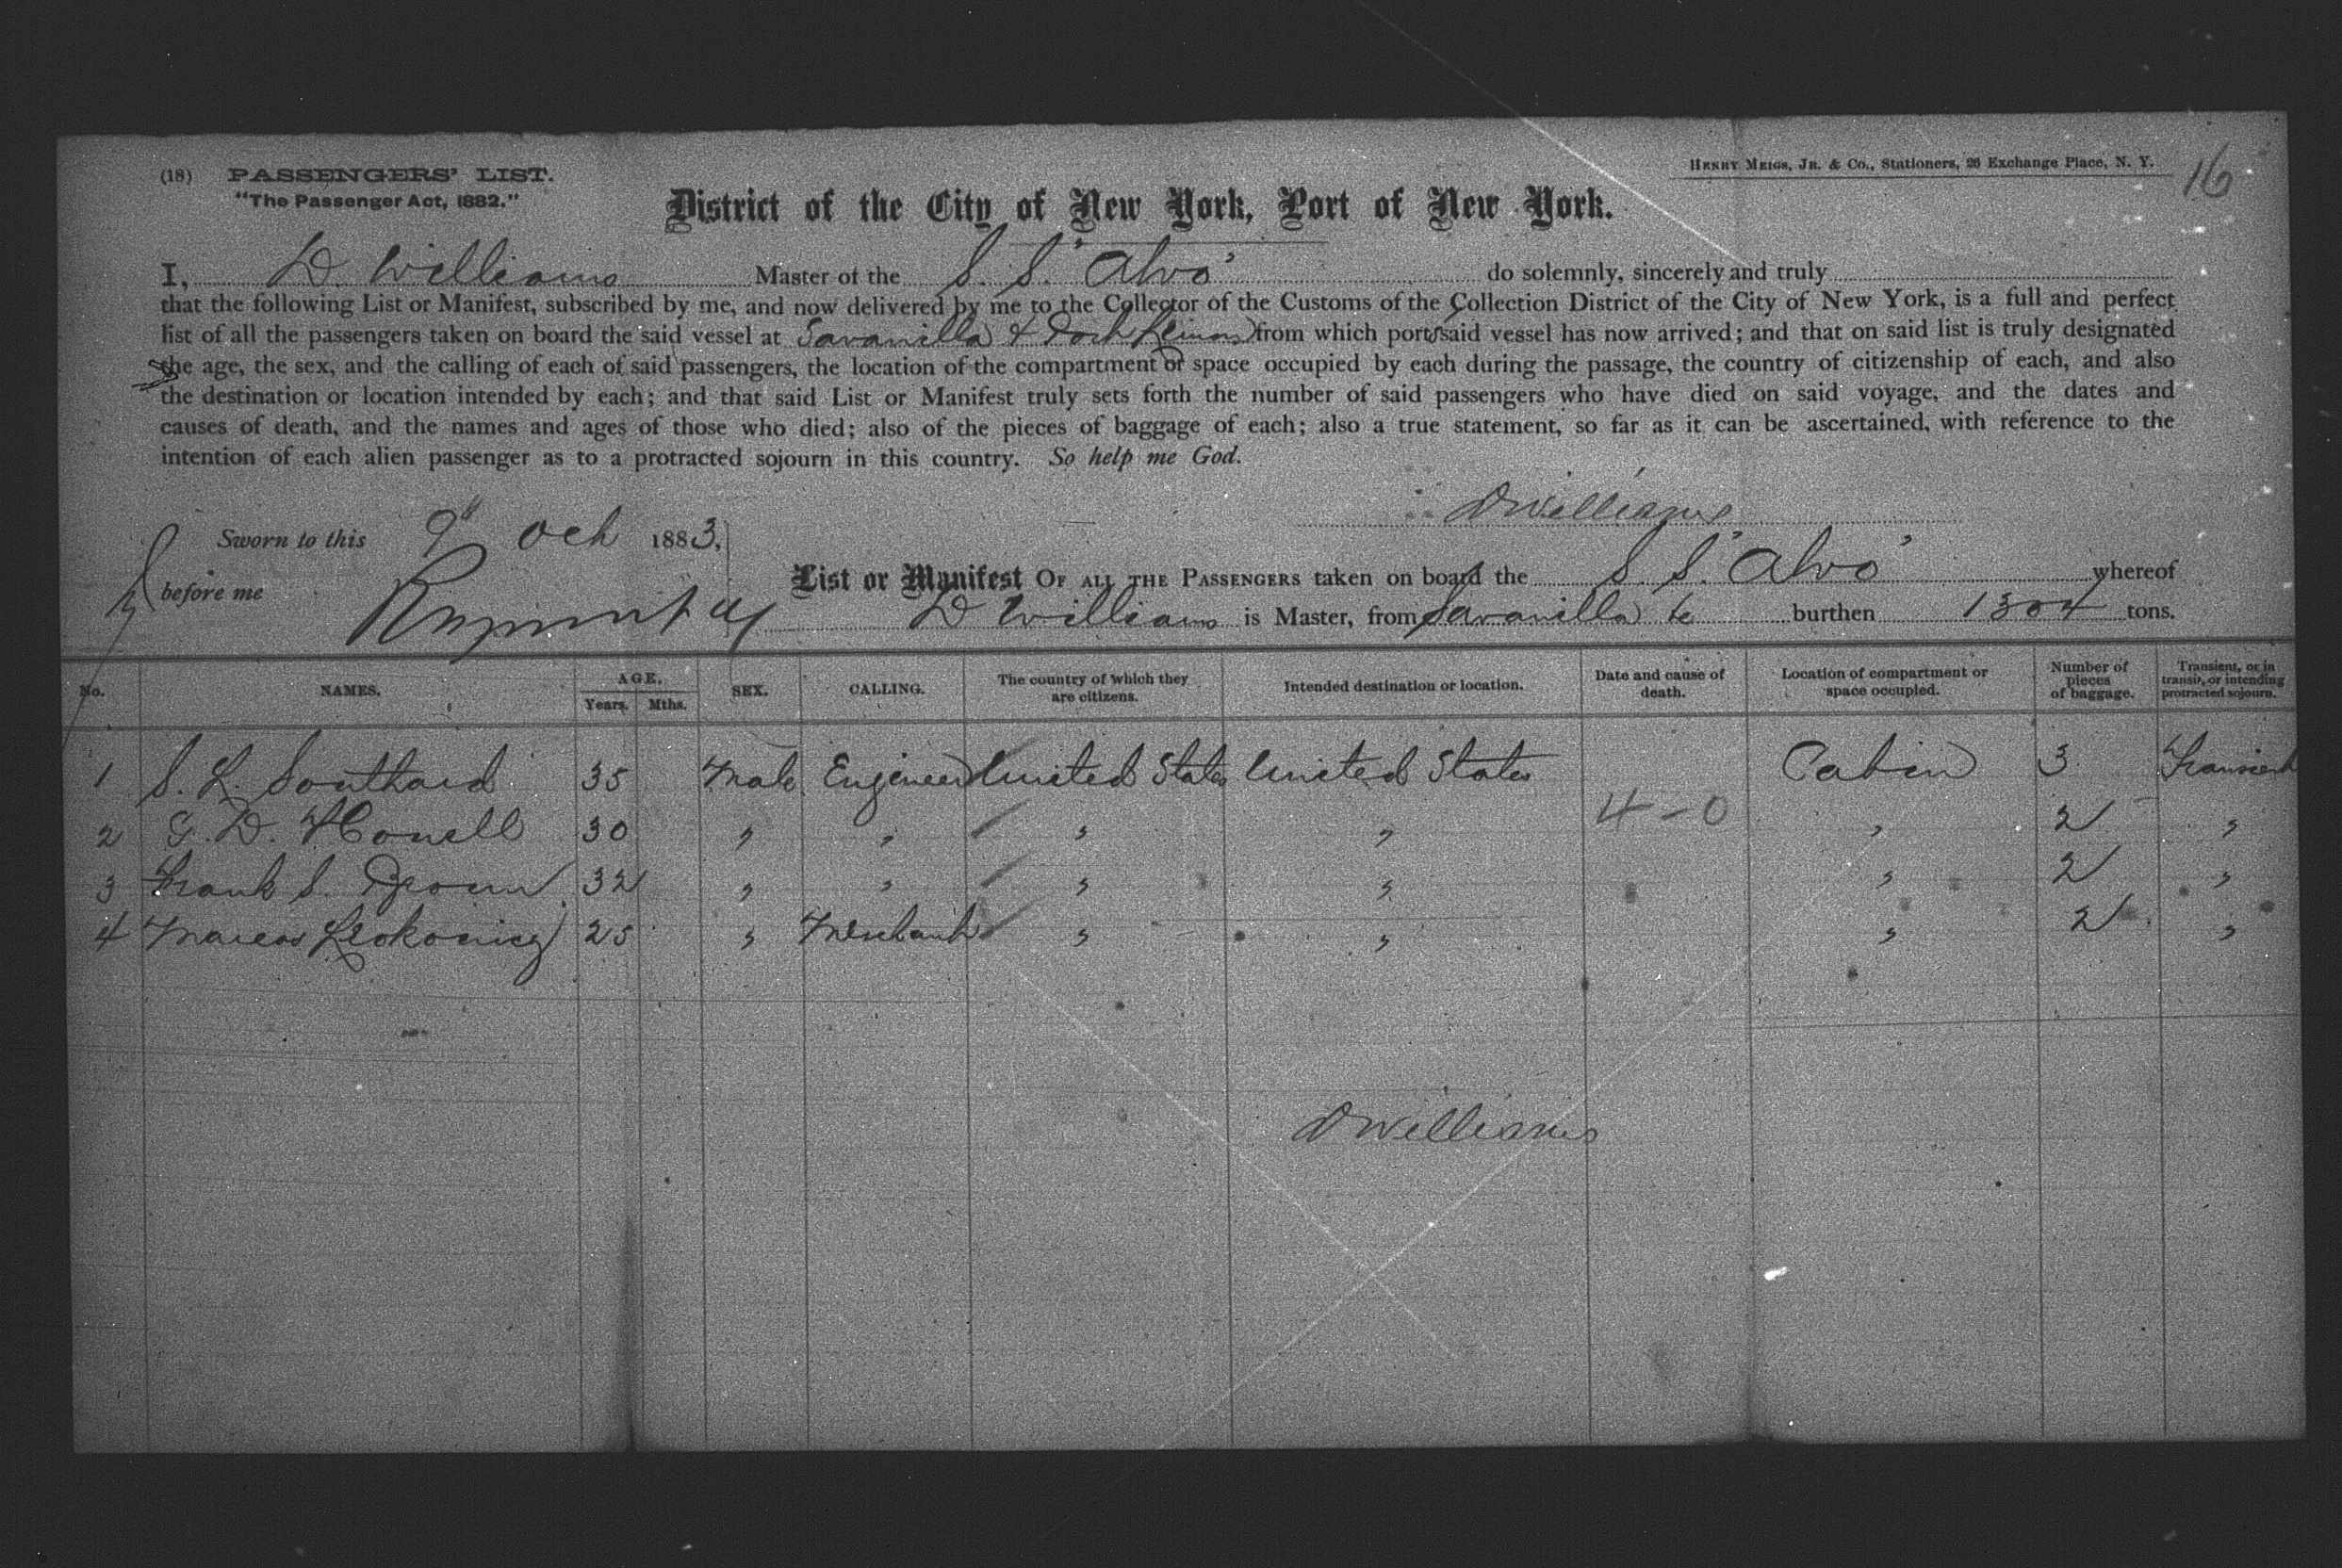 (18) PASSENGERS' LIST.
"The Passenger Act, 1882."
HENRY MEIGS, JR. & CO., Stationers, 26 Exchange Place, N. Y.
16
District of the City of New York, Port of New York.
I, D. Williams Master of the S. S. "Alvo" do solemnly, sincerely and truly
that the following List or Manifest, subscribed by me, and now delivered by me to the Collector of the Customs of the Collection District of the City of New York, is a full and perfect
list of all the passengers taken on board the said vessel at Savanilla & Port from which ports said vessel has now arrived; and that on said list is truly designated
the age, the sex, and the calling of each of said passengers, the location of the compartment or space occupied by each during the passage, the country of citizenship of each, and also
the destination or location intended by each; and that said List or Manifest truly sets forth the number of said passengers who have died on said voyage, and the dates and
causes of death, and the names and ages of those who died; also of the pieces of baggage of each; also a true statement, so far as it can be ascertained, with reference to the
intention of each alien passenger as to a protracted sojourn in this country. So help me God.
DWilliams
Sworn to this 9" Oct 1883,
before me
List or Manifest OF ALL THE PASSENGERS taken on board the S. S. "Alvo" whereof
D Williams is Master, from Savanilla &c burthen 1304 tons.
No. NAMES. AGE. Years. Mths. SEX. CALLING. The country of which they are citizens. Intended destination or location. Date and cause of death. Location of compartment or space occupied. Number of pieces of baggage. Transient, or in transit, or intending protracted sojourn.
1 S. L. Southard 35 Male Engineer United States United States Cabin 3 Transient
2 G. D. Howell 30 " " " " 4-0 " 2 "
3 Frank S. Brown 32 " " " " " 2 "
4 Marcas 25 " Merchant " " " 2 "
DWilliams